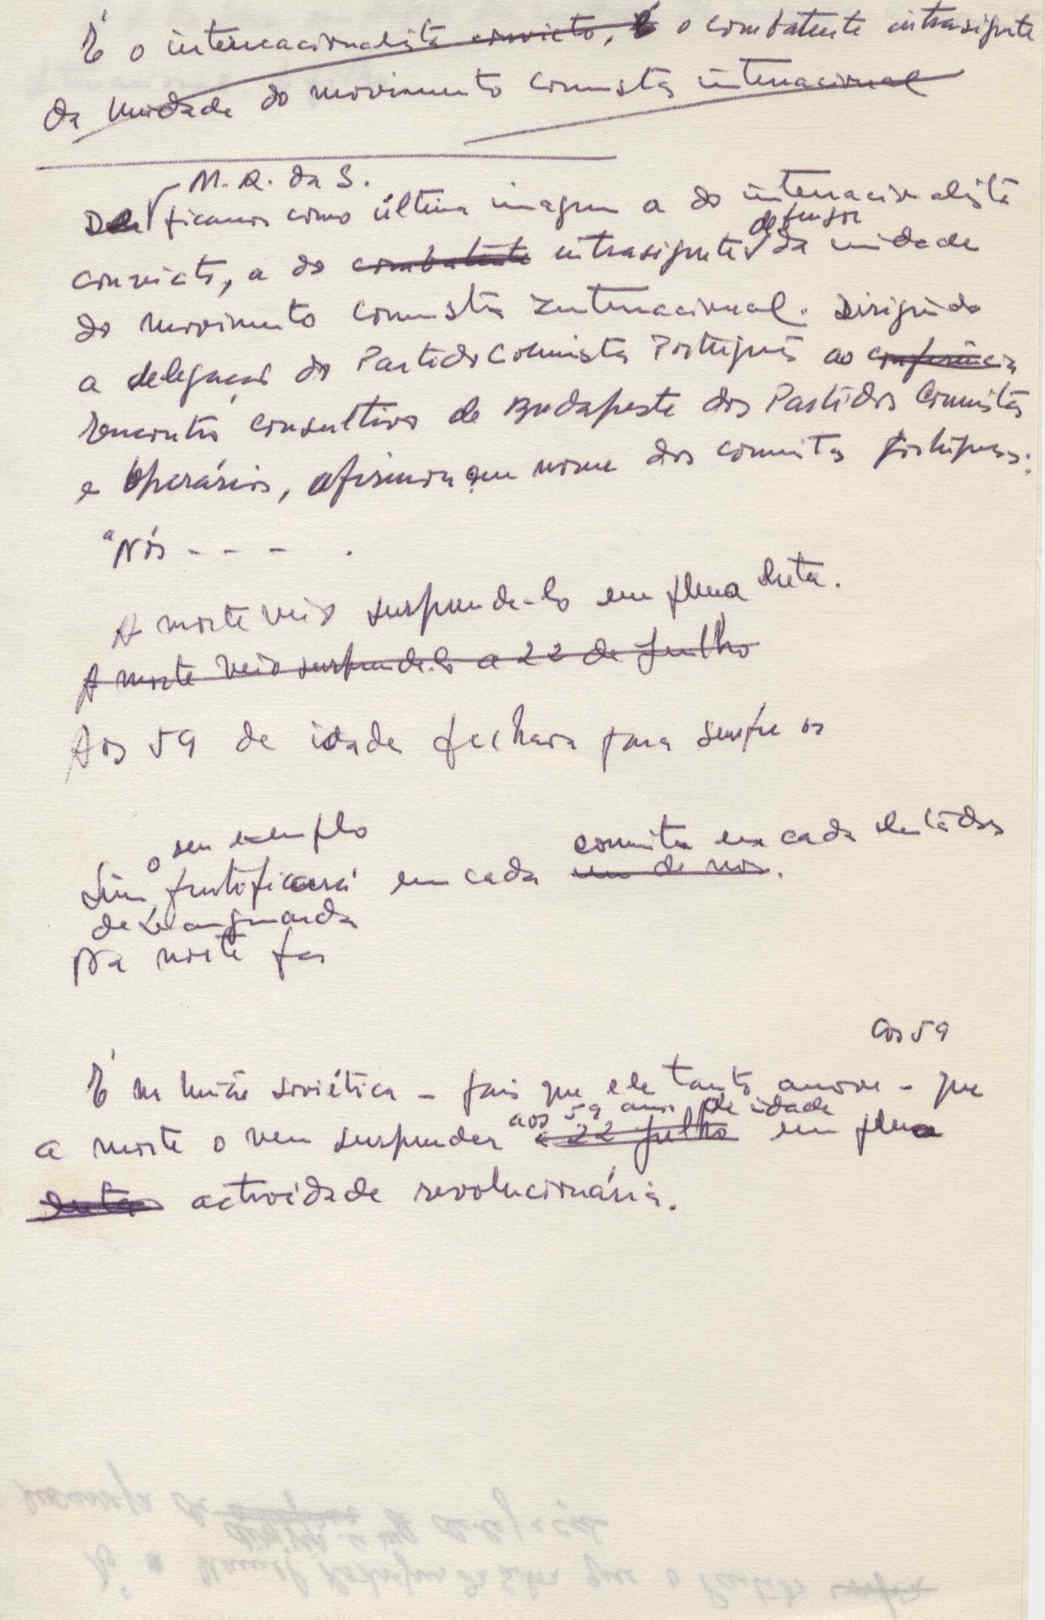 É o internacionalista convicto, É o combatente intransigente
da Unidade do movimento comunista internacional
M. R. da S.
Del ficamos como última imagem a do internacionalista
defensor
convicto, a do combatente intransigente da unidade
do movimento comunista internacional. Dirigindo
a delegação do Partido Comunista Português ao conferência
Encontro consultivo de Budapeste dos Partidos Comunistas
e Operários, afirmou em nome dos comunistas portugueses:
"Nós - - - .
A morte veio surpreende-lo em plena luta.
A morte veio surpreende-lo a 22 de Julho
Aos 59 de idade fechava para sempre os
o seu exemplo
comunista em cada lutador
Sim frutificará em cada um de nós.
de vanguarda
Na morte foi
aos 59
É na União soviética - país que ele tanto amou - que
aos 59 anos de idade
a morte o vem surpreender a 22 Julho em plena
luta actividade revolucionária.